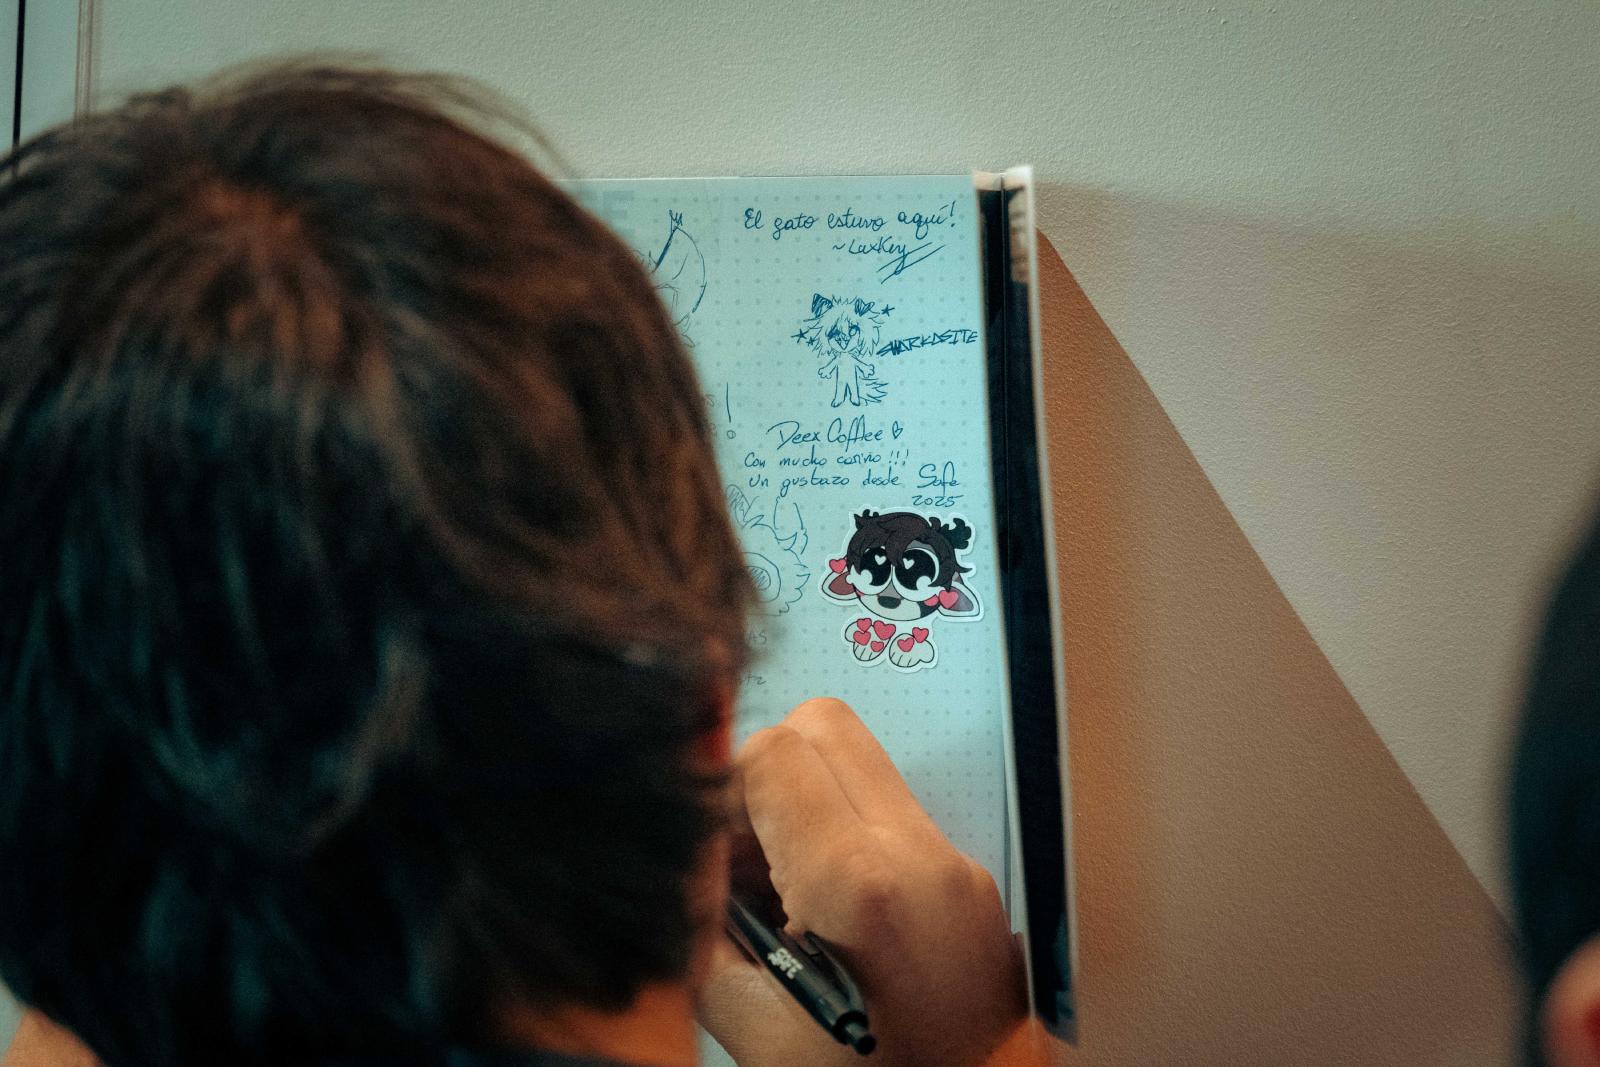 El gato estuvo aquí!
~LuxKey
SHARKASITE
Deex Coffee
Con mucho cariño !!!
Un gustazo desde Safe
2025